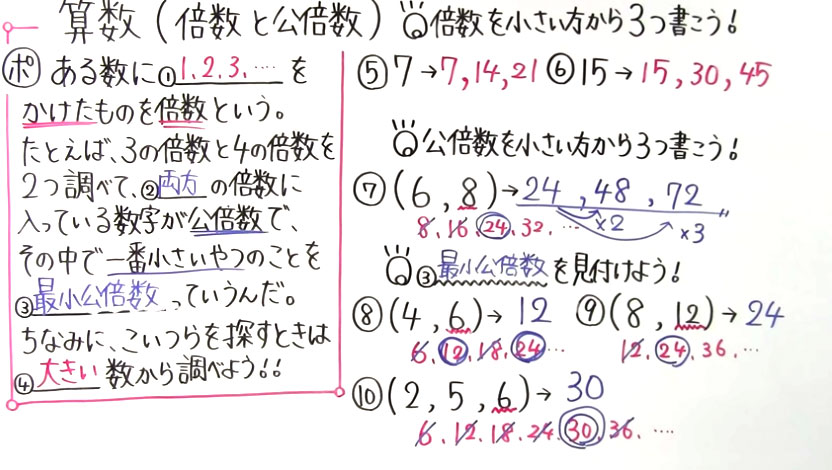 算数(倍数と公倍数)
ポ ある数に①1.2.3.····を
かけたものを倍数という。
たとえば、3の倍数と4の倍数を
2つ調べて、②両方の倍数に
入っている数字が公倍数で、
その中で一番小さいやつのことを
③最小公倍数っていうんだ。
ちなみに、こいつらを探すときは
④大きい数から調べよう!!
倍数を小さい方から3つ書こう!
⑤7→7,14,21 ⑥15→15,30,45
公倍数を小さい方から3つ書こう!
⑦(6,8)→24,48,72
8.16.24.32.··· ×2 ×3
③最小公倍数を見付けよう!
⑧(4,6)→12 ⑨(8,12)→24
6.12.18.24··· 12.24.36.···
⑩(2,5,6)→30
6.12.18.24.30.36.····